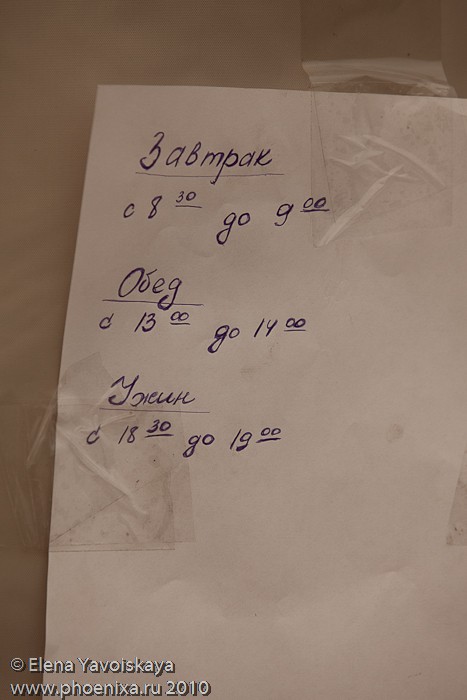 Завтрак
с 8 30 до 9 00
Обед
с 13 00 до 14 00
Ужин
с 18 30 до 19 00
© Elena Yavoiskaya
www.phoenixa.ru 2010